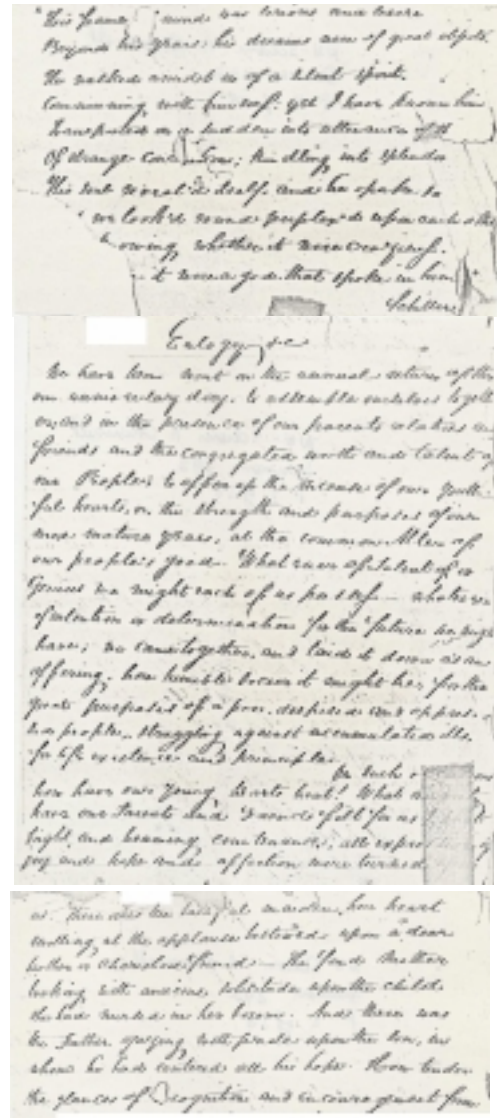 "This Young      minds was serious and severe
Beyond his years; his dreams were of great objects.
He walked amidst us of a silent spirit,
Communing with himself: yet I have known him
Transported on a sudden into utterance of
Of strange            ; kindling into splendor
His soul reveal'd itself, and he spake so
we look'd round perplex'd upon each other
owing, whether it were craziness,
it were a god that spoke in him
Schiller
Eulogy &c
We have been wont on the annual return of this
our anniversary day, to assemble ourselves togeth
er, and in the presence of our parents relatives an
friends and the congregated worth and talent of
our People; to offer up the incense of our youth
ful hearts, or the strength and purposes of our
more mature years, at the common Altar of
our people's good. What ever of talent or
Genius we might each of us possess — whatever
of intention or determination for the future we might
have; we came together, and laid it down as an
offering, how humble soever it might be, for the
great purposes of a poor, despised and oppress
people, struggling against accumulated ills,
for life existence and principle.
On such
how have our young hearts beat! What
have our Parents and friends felt for us
light and beaming countenances, all expres
joy and hope and affection were turned
us. There was the            maiden, her heart
melting at the applause bestowed upon a dear
brother or cherished friend — the fond Mother
looking with anxious solicitude upon the child
she had nursed in her bosom. And there was
the Father gazing with pride upon the son, in
whom he had centered all his hope. How tender
the glances of Recognition and encouragement from